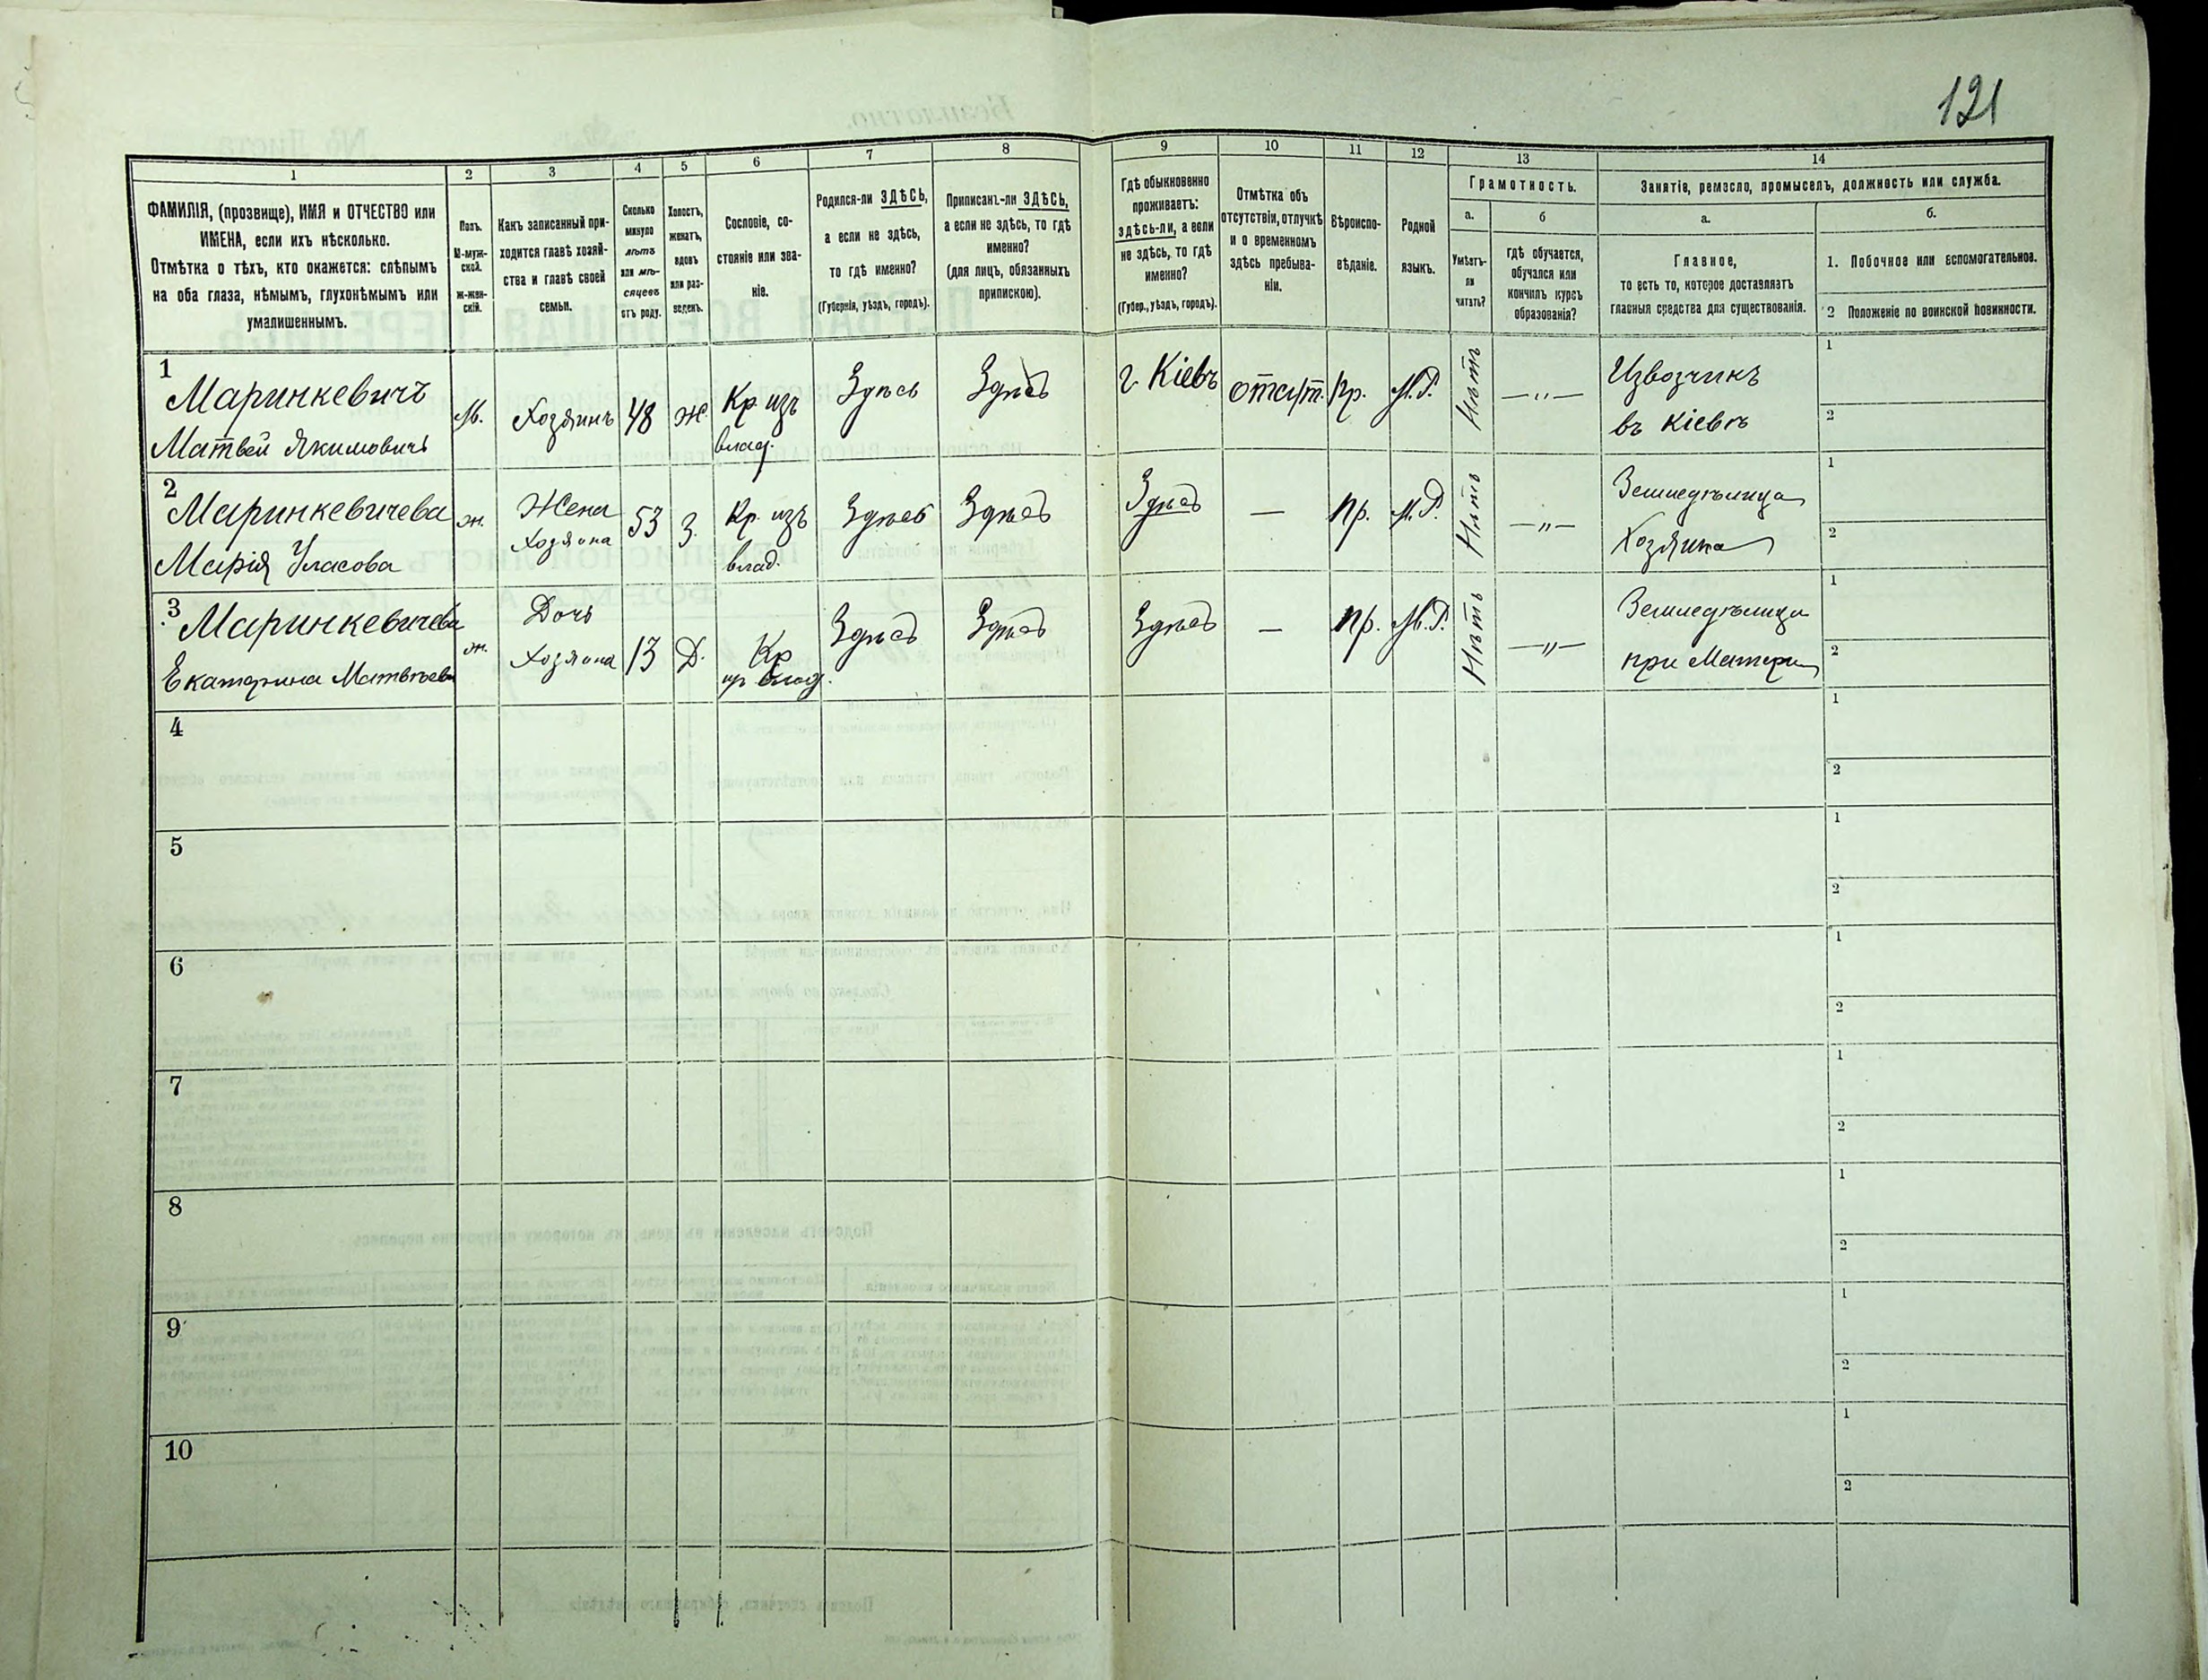 121
1 2 3 4 5 6 7 8 9 10 11 12 13 14
ФАМИЛІЯ, (прозвище), ИМЯ и ОТЧЕСТВО или
ИМЕНА, если ихъ нѣсколько.
Отмѣтка о тѣхъ, кто окажется: слѣпымъ
на оба глаза, нѣмымъ, глухонѣмымъ или
умалишеннымъ.
Полъ.
М-муж-
ской.
ж-жен-
скій.
Какъ записанный при-
ходится главѣ хозяй-
ства и главѣ своей
семьи.
Сколько
минуло
лѣтъ
или мѣ-
сяцевъ
отъ роду.
Холостъ,
женатъ,
вдовъ
или раз-
веденъ.
Сословіе, со-
стояніе или зва-
ніе.
Родился-ли ЗДѢСЬ,
а если не здѣсь,
то гдѣ именно?
(Губернія, уѣздъ, городъ).
Приписанъ-ли ЗДѢСЬ,
а если не здѣсь, то гдѣ
именно?
(для лицъ, обязанныхъ
припискою).
Гдѣ обыкновенно
проживаетъ:
здѣсь-ли, а если
не здѣсь, то гдѣ
именно?
(Губер., уѣздъ, городъ).
Отмѣтка объ
отсутствіи, отлучкѣ
и о временномъ
здѣсь пребыва-
ніи.
Вѣроиспо-
вѣданіе.
Родной
языкъ.
Грамотность.
а.
Умѣетъ-
ли
читать?
б
гдѣ обучается,
обучался или
кончилъ курсъ
образованія?
Занятіе, ремесло, промыселъ, должность или служба.
а.
Главное,
то есть то, которое доставляетъ
главныя средства для существованія.
б.
1. Побочное или вспомогательное.
2 Положеніе по воинской повинности.
1
Маринкевичъ
Матвей Якимовичъ
м.
Хозяинъ
48
ж.
Кр. изъ
влад.
Здѣсь
Здѣсь
г. Кіевъ
отсут.
пр.
М.Р.
Нѣтъ
— „ —
Извозчикъ
въ Кіевѣ
1
2
2
Маринкевичева
Марія Уласова
ж.
Жена
Хозяина
53
З.
Кр. изъ
влад.
Здѣсь
Здѣсь
Здѣсь
—
пр.
М.Р.
Нѣтъ
— „ —
Земледѣлица
Хозяина
1
2
3
Маринкевичева
Екатерина Матвѣева
ж.
Дочь
Хозяина
13
Д.
Кр
из влад.
Здѣсь
Здѣсь
Здѣсь
—
пр.
М.Р.
Нѣтъ
— „ —
Земледѣлица
при Матери
1
2
4
1
2
5
1
2
6
1
2
7
1
2
8
1
2
9
1
2
10
1
2